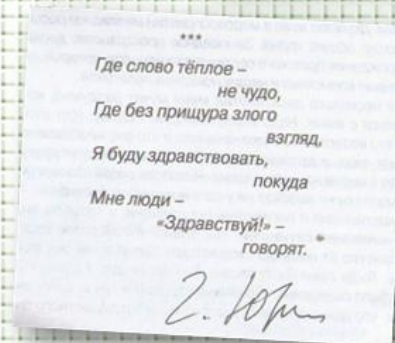 ***
Где слово тёплое –
не чудо,
Где без прищура злого
взгляд,
Я буду здравствовать,
покуда
Мне люди –
«Здравствуй!» –
говорят.